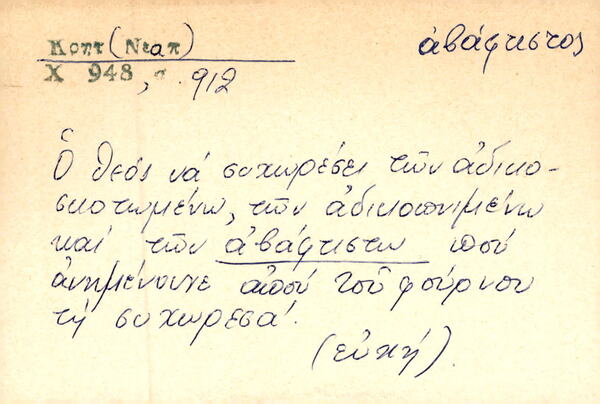 Κρητ (Νεαπ)
Χ 948, σ. 912
ἀβάφτιστος
Ὁ θεός νά συχωρέσει τῶν ἀδικο-
σκοτωμένω, τῶν ἀδικοπνιμένω
καί τῶν ἀβάφτιστω πού
ἀνημένουνε ἀπού τοῦ φούρνου
τή συχωρεσά!
(εὐχή).